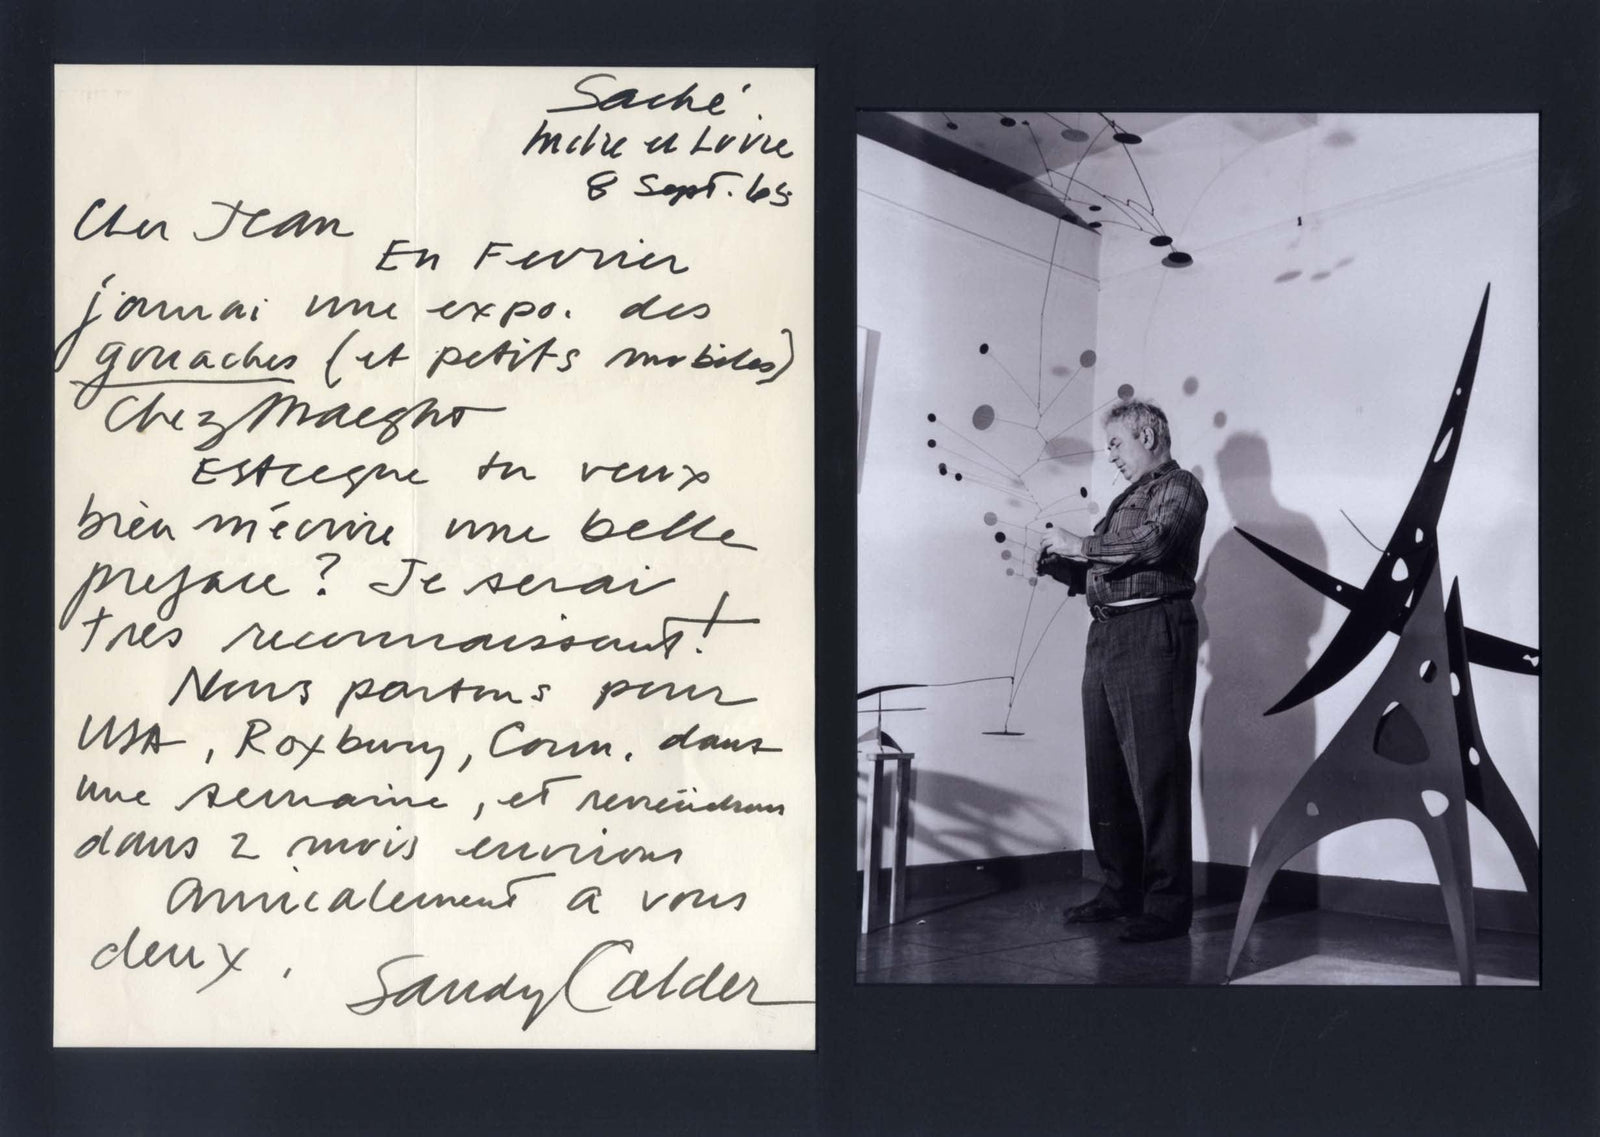 Saché
Indre et Loire
8 Sept. 65
Cher Jean
En Fevrier
j'aurai une expo. des
gouaches (et petits mobiles)
Chez Maeght
Estceque tu veux
bien m'écrire une belle
preface? Je serai
très reconnaissant!
Nous partons pour
USA, Roxbury, Conn. dans
une semaine, et reviendrons
dans 2 mois environs
amicalement a vous
deux.
Sandy Calder